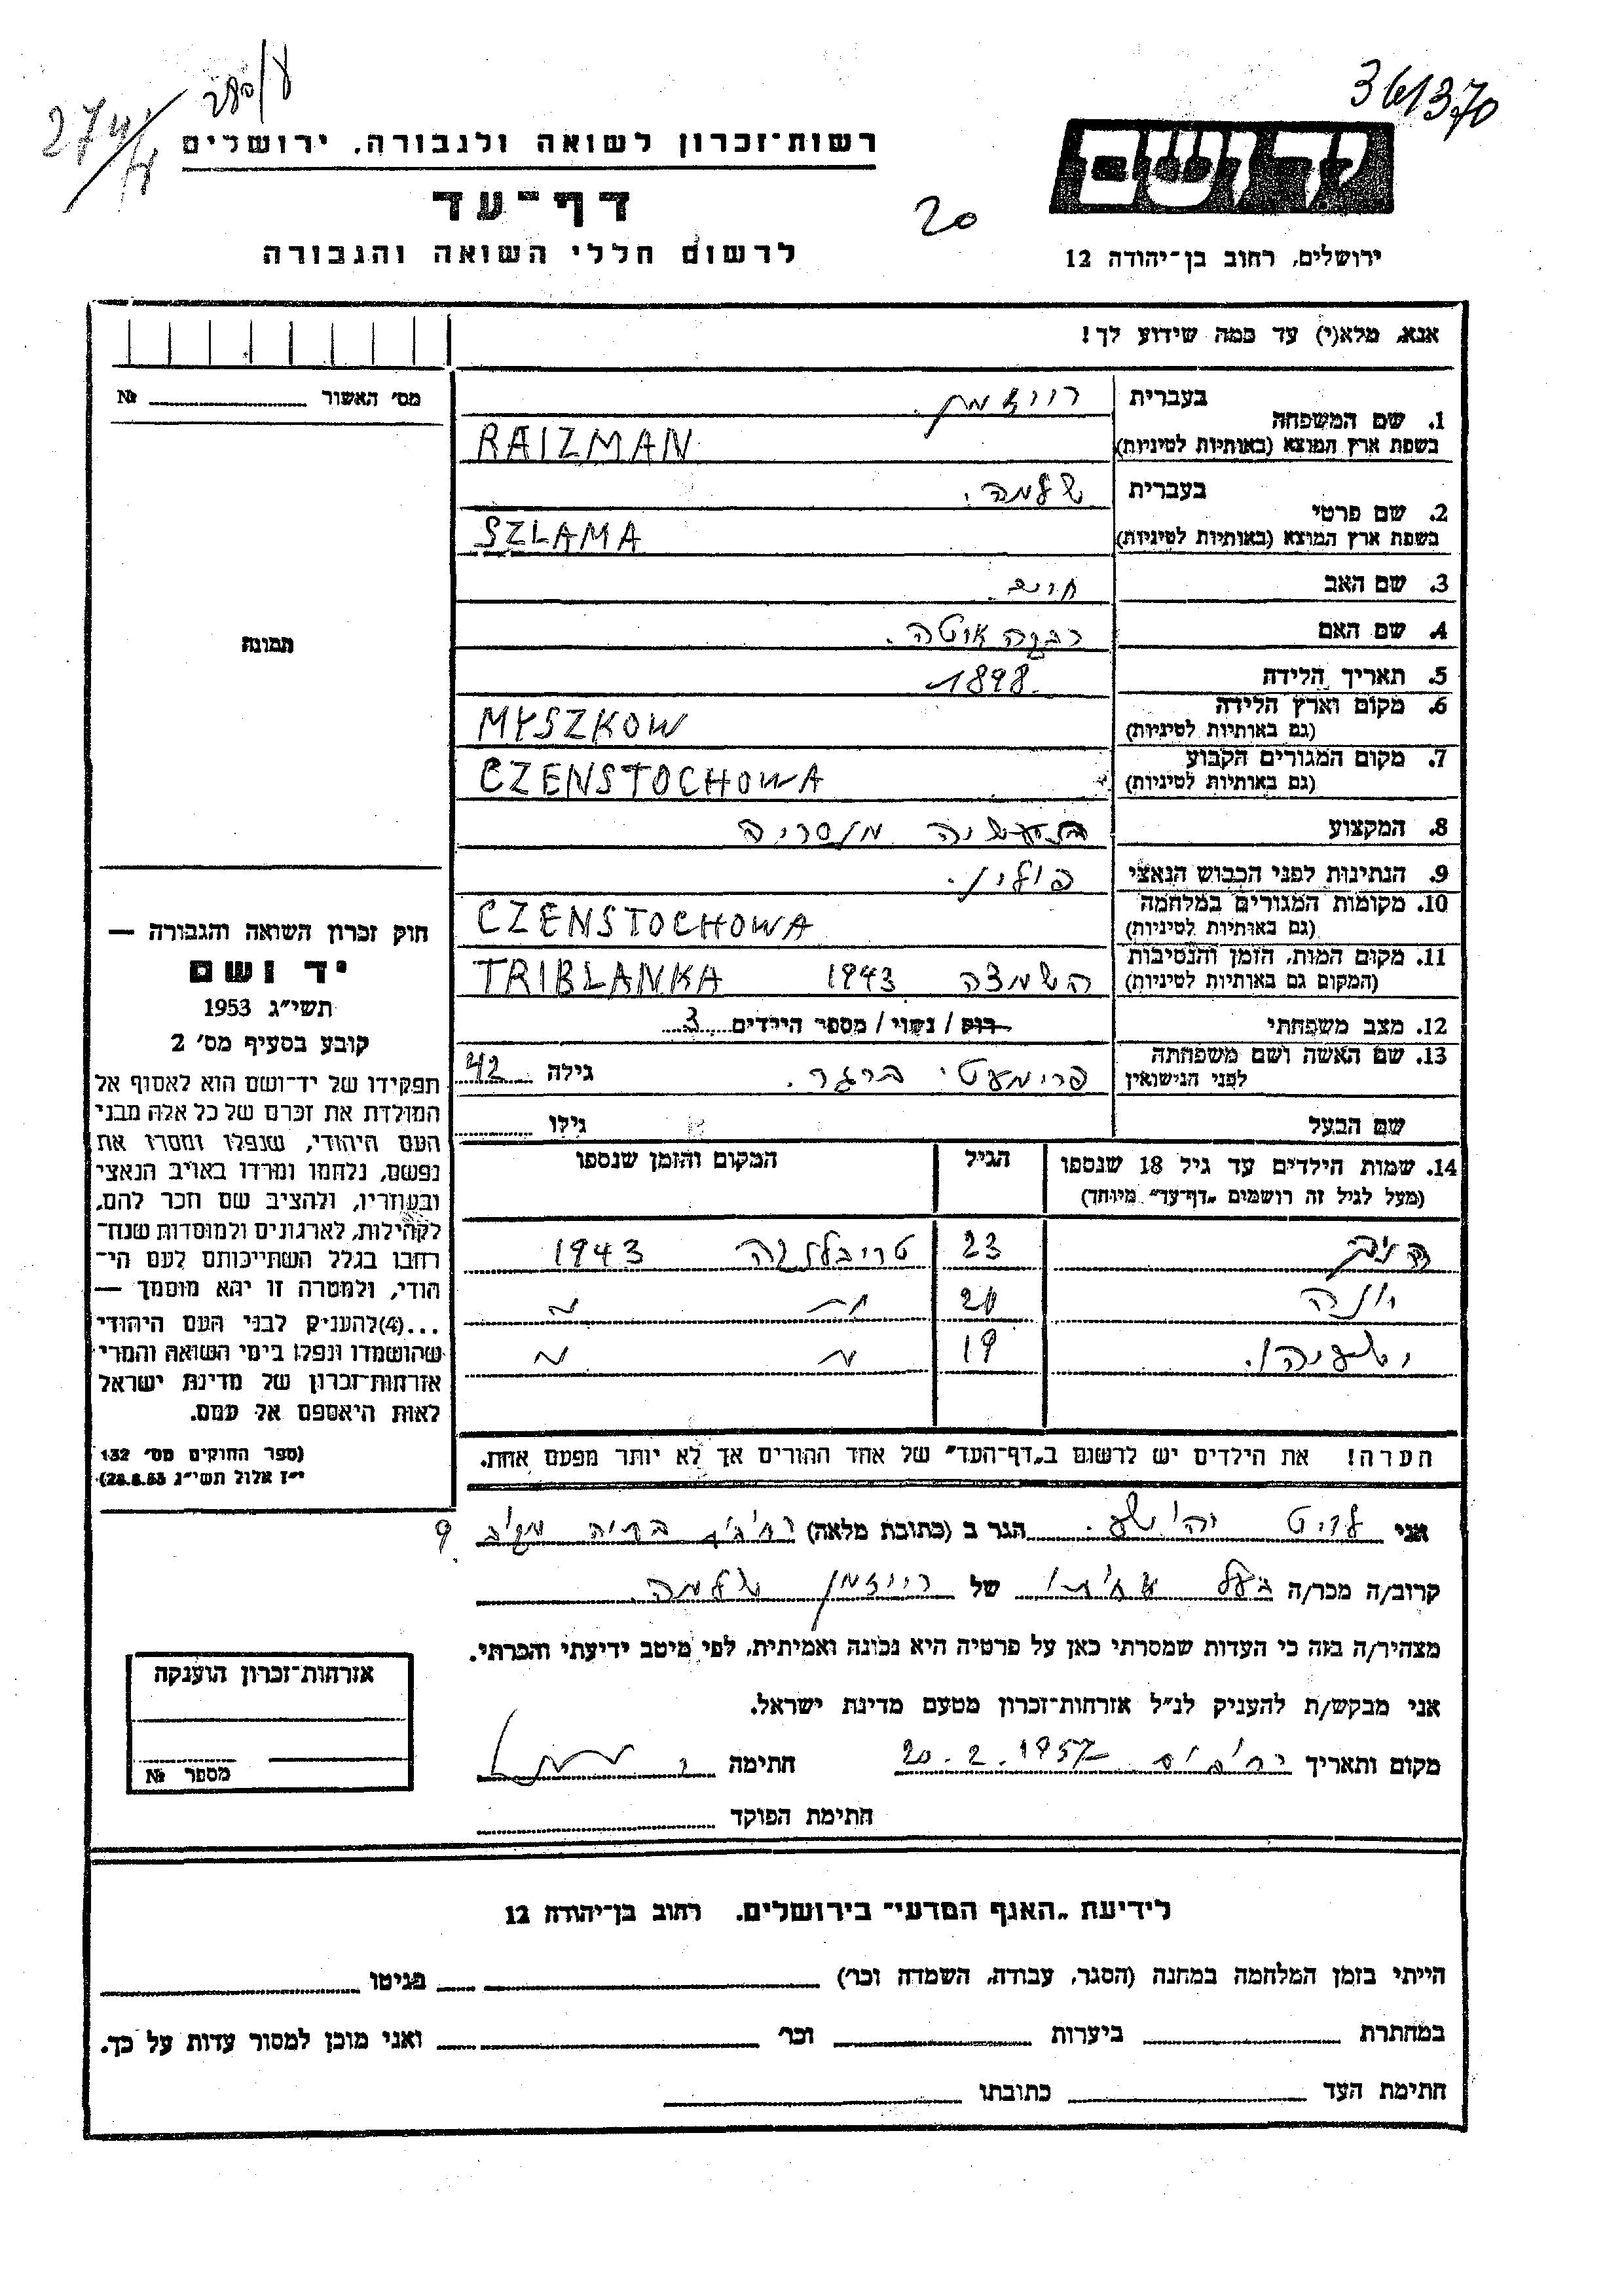 361370
274/4
רשות־זכרון לשואה ולגבורה, ירושלים
דף־עד
20
לרשום חללי השואה והגבורה
יד ושם
ירושלים, רחוב בן־יהודה 12
אנא, מלא(י) עד כמה שידוע לך!
מס׳ האשור № 
1. שם המשפחה
בעברית רייזמן.
בשפת ארץ המוצא (באותיות לטיניות) RAIZMAN
2. שם פרטי
בעברית שלמה.
בשפת ארץ המוצא (באותיות לטיניות) SZLAMA
3. שם האב חיים.
4. שם האם רבקה איטה.
5. תאריך הלידה 1898
6. מקום וארץ הלידה MYSZKOW
(גם באותיות לטיניות)
7. מקום המגורים הקבוע CZENSTOCHOWA
(גם באותיות לטיניות)
8. המקצוע
9. הנתינות לפני הכבוש הנאצי פולין.
10. מקומות המגורים במלחמה CZENSTOCHOWA
(גם באותיות לטיניות)
11. מקום המות, הזמן והנסיבות השמדה 1943 TRIBLANKA
(המקום גם באותיות לטיניות)
12. מצב משפחתי רוק / נשוי / מספר הילדים 3
13. שם האשה ושם משפחתה לפני הנישואין ברגר. גילה 42
שם הבעל גילו
תמונה
חוק זכרון השואה והגבורה —
יד ושם
תשי״ג 1953
קובע בסעיף מס׳ 2
תפקידו של יד־ושם הוא לאסוף אל
המולדת את זכרם של כל אלה מבני
העם היהודי, שנפלו ומסרו את
נפשם, נלחמו ומרדו באויב הנאצי
ובעוזריו, ולהציב שם וזכר להם,
לקהילות, לארגונים ולמוסדות שנח־
רבו בגלל השתייכותם לעם הי־
הודי, ולמטרה זו יהא מוסמך —
...(4) להעניק לבני העם היהודי
שהושמדו ונפלו בימי השואה והמרי
אזרחות־זכרון של מדינת ישראל
לאות היאספם אל עמם.
(ספר החוקים מס׳ 132
י״ז אלול תשי״ג 28.8.53)
14. שמות הילדים עד גיל 18 שנספו הגיל המקום והזמן שנספו
(מעל לגיל זה רושמים „דף־עד״ מיוחד)
23 טריבלנקה 1943
יונה 21 ״ ״
ישעיהו. 19 ״ ״
הערה! את הילדים יש לרשום ב„דף־העד״ של אחד ההורים אך לא יותר מפעם אחת.
אני יהושע. הגר ב (כתובת מלאה) 9
קרוב/ה מכר/ה בעל אחותו של רייזמן שלמה.
מצהיר/ה בזה כי העדות שמסרתי כאן על פרטיה היא נכונה ואמיתית, לפי מיטב ידיעתי והכרתי.
אני מבקש/ת להעניק לנ״ל אזרחות־זכרון מטעם מדינת ישראל.
מקום ותאריך 20.2.1957 חתימה
חתימת הפוקד
אזרחות־זכרון הוענקה
מספר №
לידיעת „האגף המדעי״ בירושלים, רחוב בן־יהודה 12
הייתי בזמן המלחמה במחנה (הסגר, עבודה, השמדה וכו׳) בגיטו
במחתרת ביערות וכו׳ ואני מוכן למסור עדות על כך.
חתימת העד כתובתו